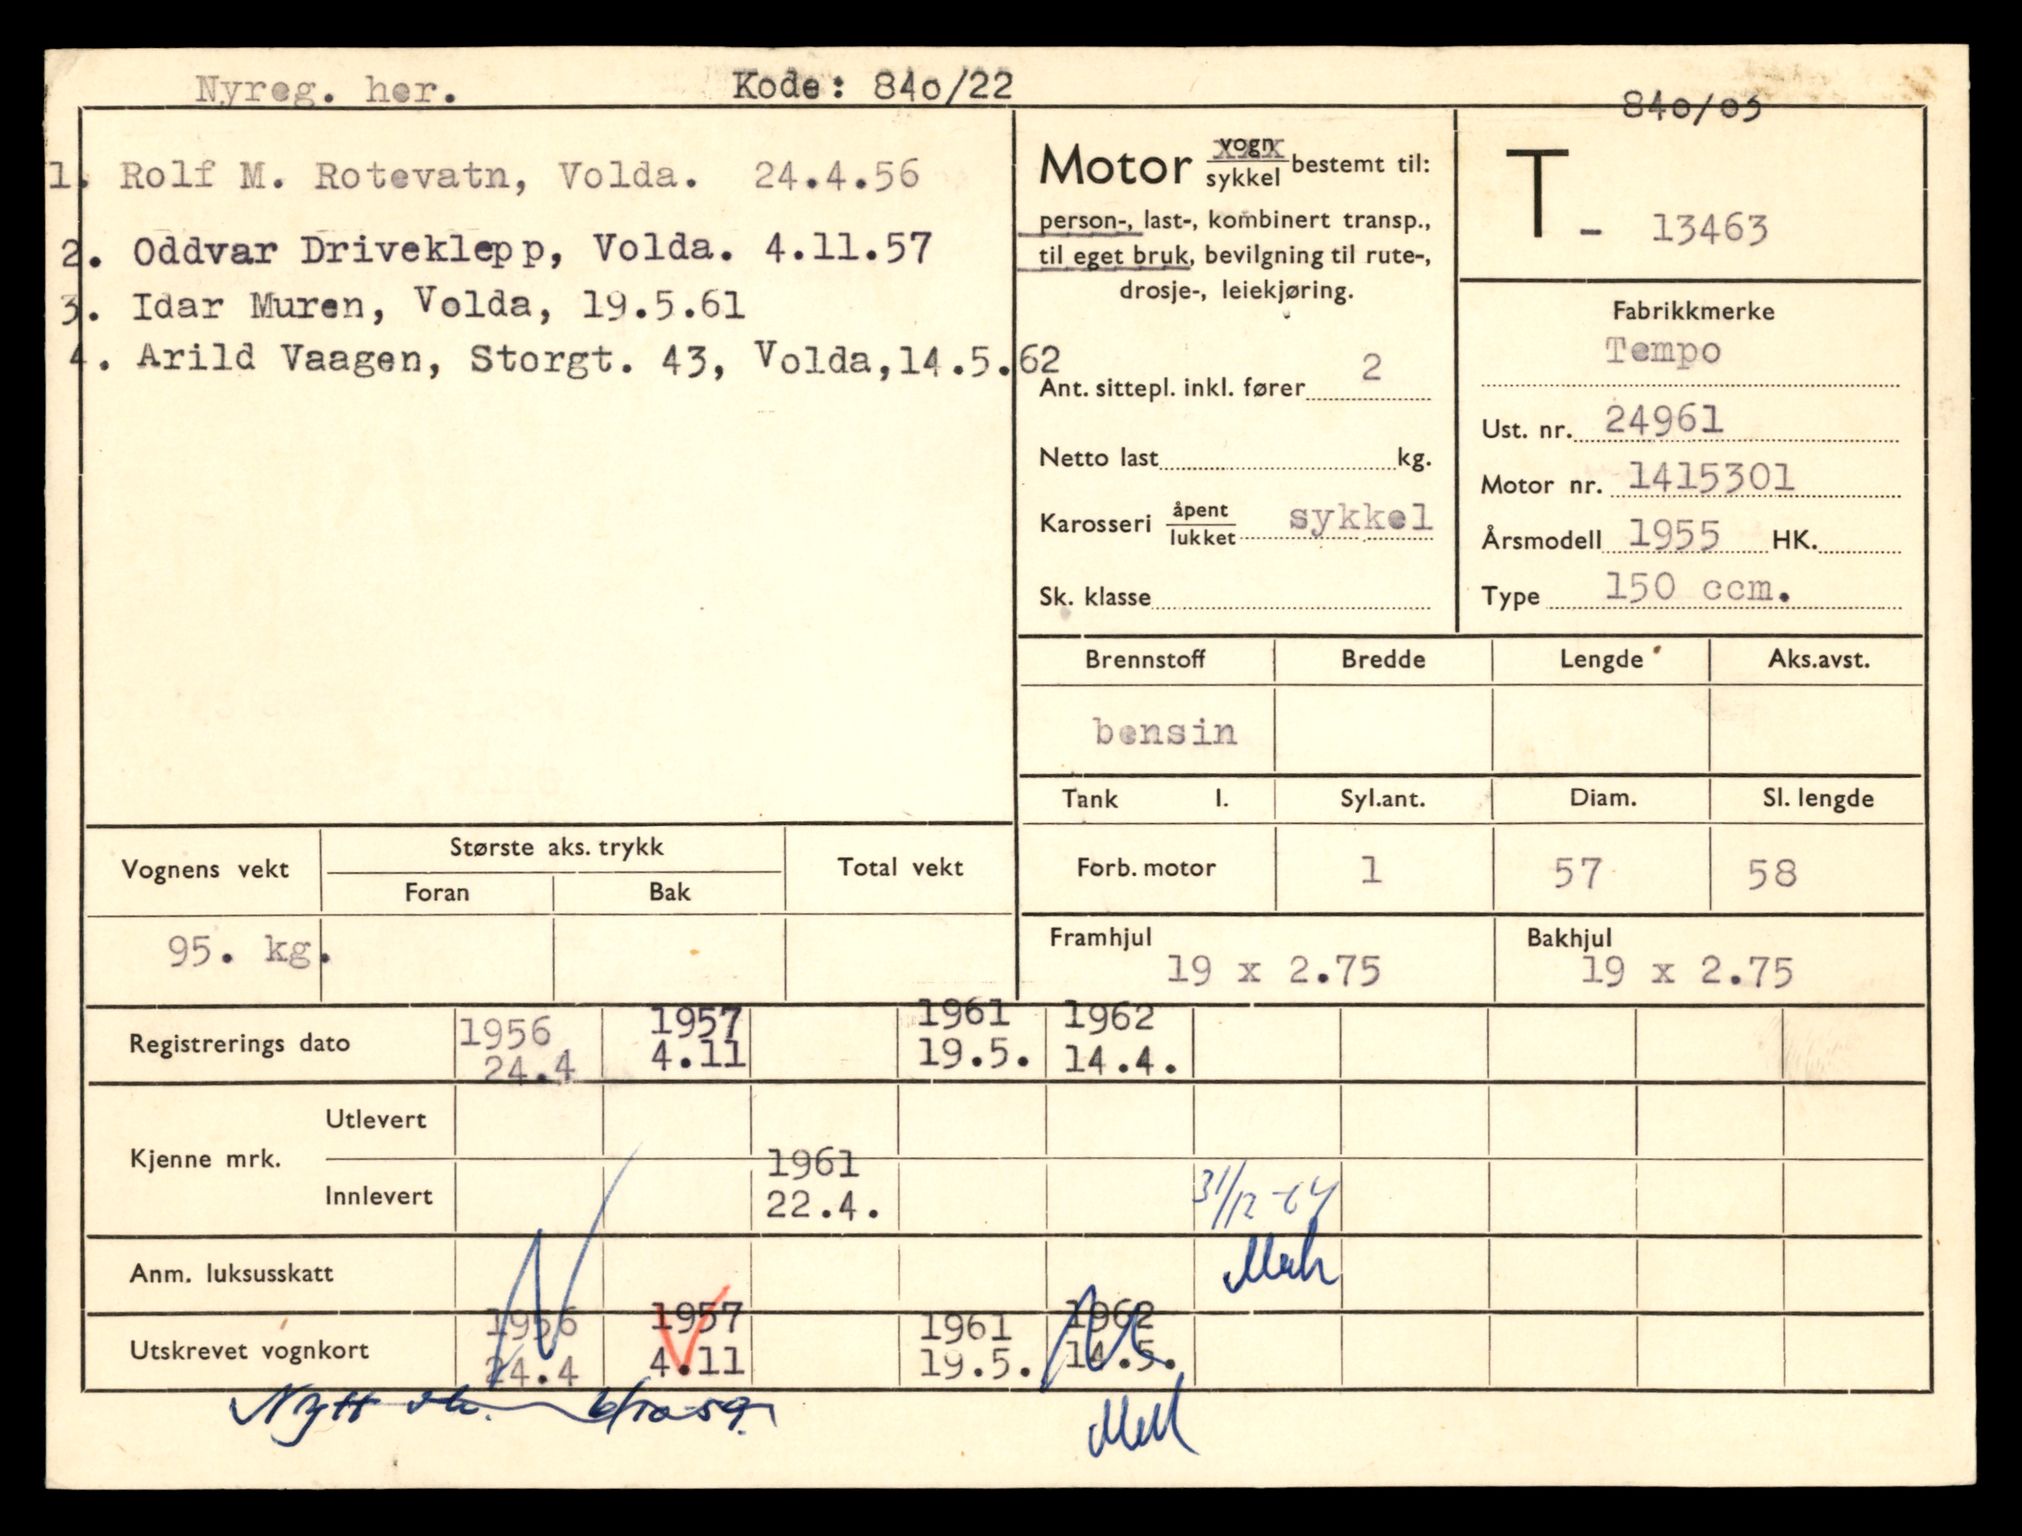 Nyreg. her.
Kode: 840/22
840/03
1. Rolf M. Rotevatn, Volda. 24.4.56
2. Oddvar Driveklepp, Volda. 4.11.57
3. Idar Muren, Volda, 19.5.61
4. Arild Vaagen, Storgt. 43, Volda, 14.5.62
Motor vogn sykkel bestemt til:
person-, last-, kombinert transp.,
til eget bruk, bevilgning til rute-,
drosje-, leiekjøring.
Ant. sittepl. inkl. fører 2
Netto last kg.
Karosseri åpent lukket sykkel
Sk. klasse
T - 13463
Fabrikkmerke
Tempo
Ust. nr. 24961
Motor nr. 1415301
Årsmodell 1955 HK.
Type 150 ccm.
Brennstoff Bredde Lengde Aks.avst.
bensin
Tank l. Syl.ant. Diam. Sl. lengde
Forb. motor 1 57 58
Framhjul Bakhjul
19 x 2.75 19 x 2.75
Vognens vekt Største aks. trykk Total vekt
Foran Bak
95. kg.
Registrerings dato 1956 1957 1961 1962
24.4 4.11 19.5. 14.4.
Kjenne mrk. Utlevert
Innlevert 1961 31/12-64
22.4.
Anm. luksusskatt
Utskrevet vognkort 1956 1957 1961 1962
24.4 4.11 19.5. 14.5.
Nytt 6/10-59.